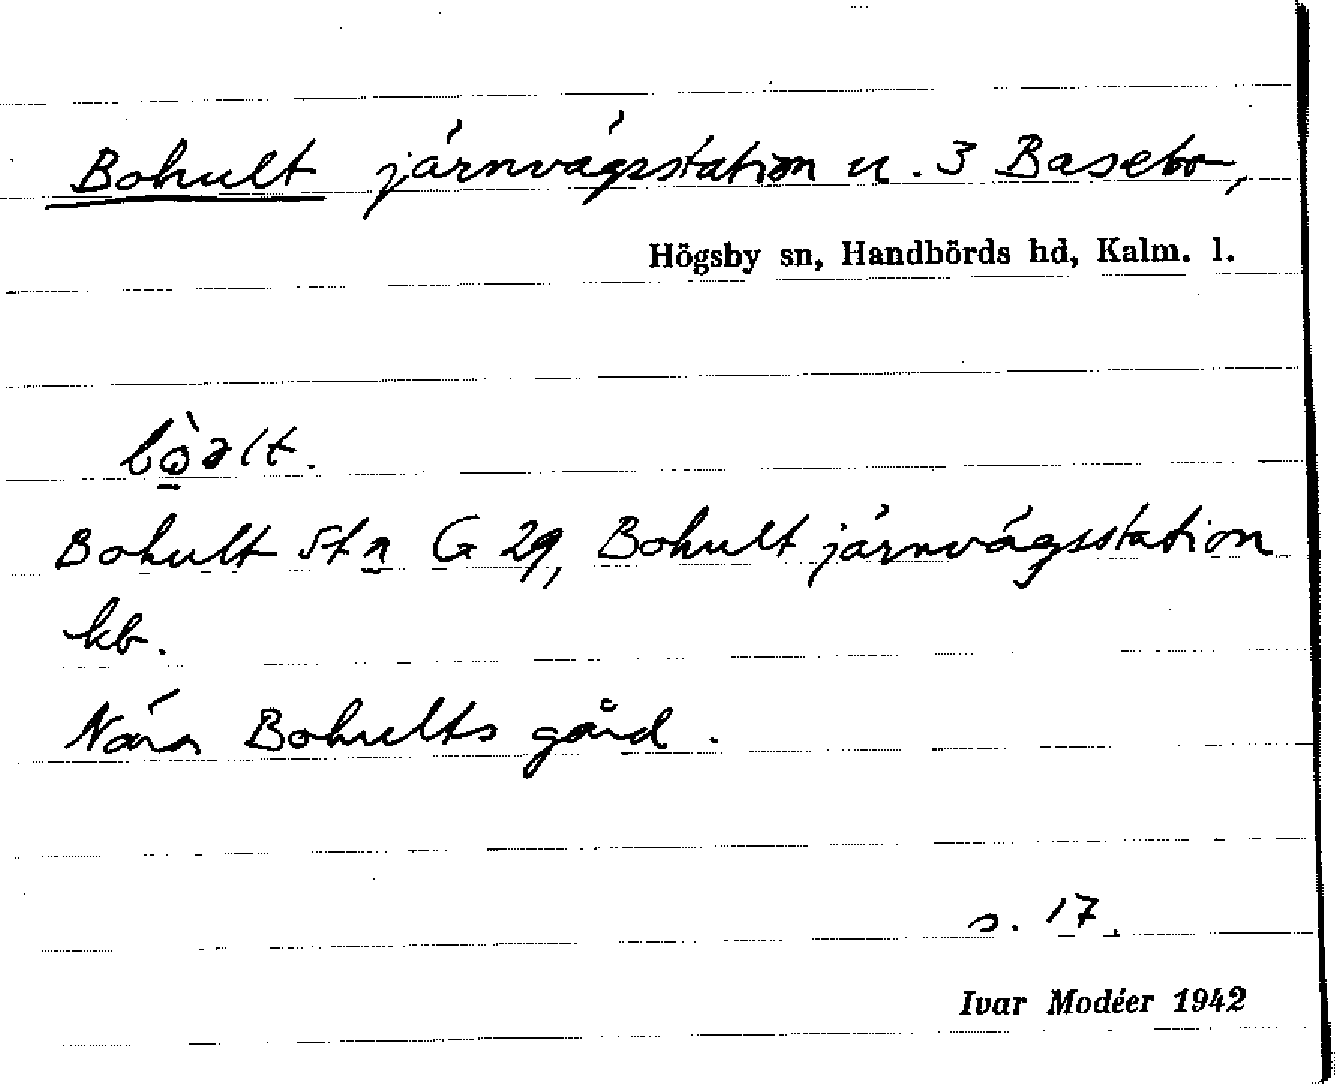 Bohult järnvägsstation u. 3 Basebo,
Högsby sn, Handbörds hd, Kalm. l.
bò̱əlt.
Bohult Stn G 29, Bohult järnvägsstation
kb.
Nära Bohults gård.
s. 17.
Ivar Modéer 1942